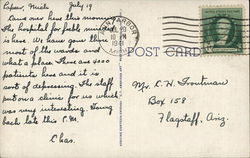 Lapeer, Mich. July 19
Are over here this morning
The hospital for feeble minded
is here. We have gone thru
most of the wards and
what a place. There are 4000
patients here and it is
sort of depressing. The staff
put on a clinic for us which
was very interesting. Going
back late this P.M.
Chas.
ANN ARBOR
JUL 20
10 AM
1941
MICH.
POST CARD
Mr. C. H. Troutman
Box 158
Flagstaff, Ariz.